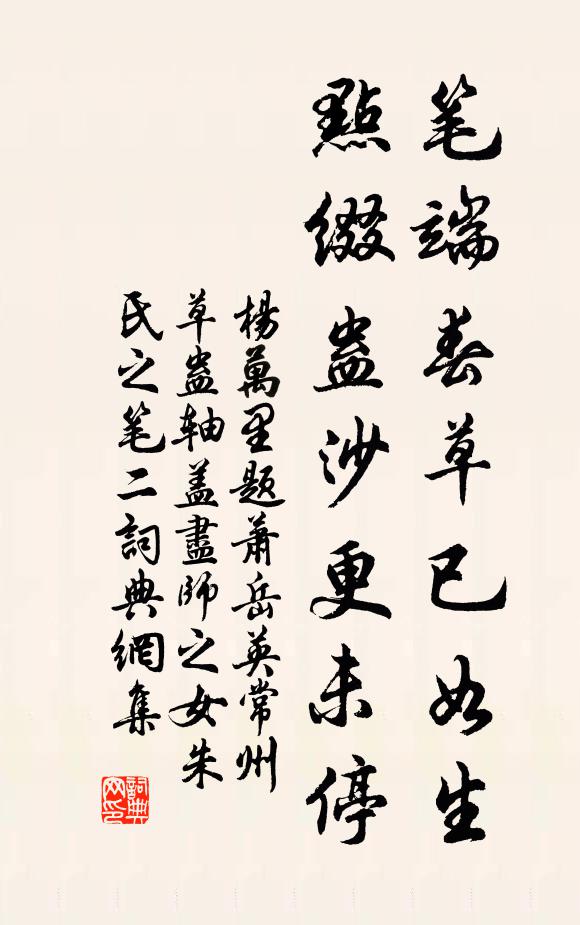 笔端春草已如生
點綴蟲沙更未停
楊萬里题蕭岳英常州
草蟲轴盖畫師之女朱
氏之笔二詞典網集
詞典网印